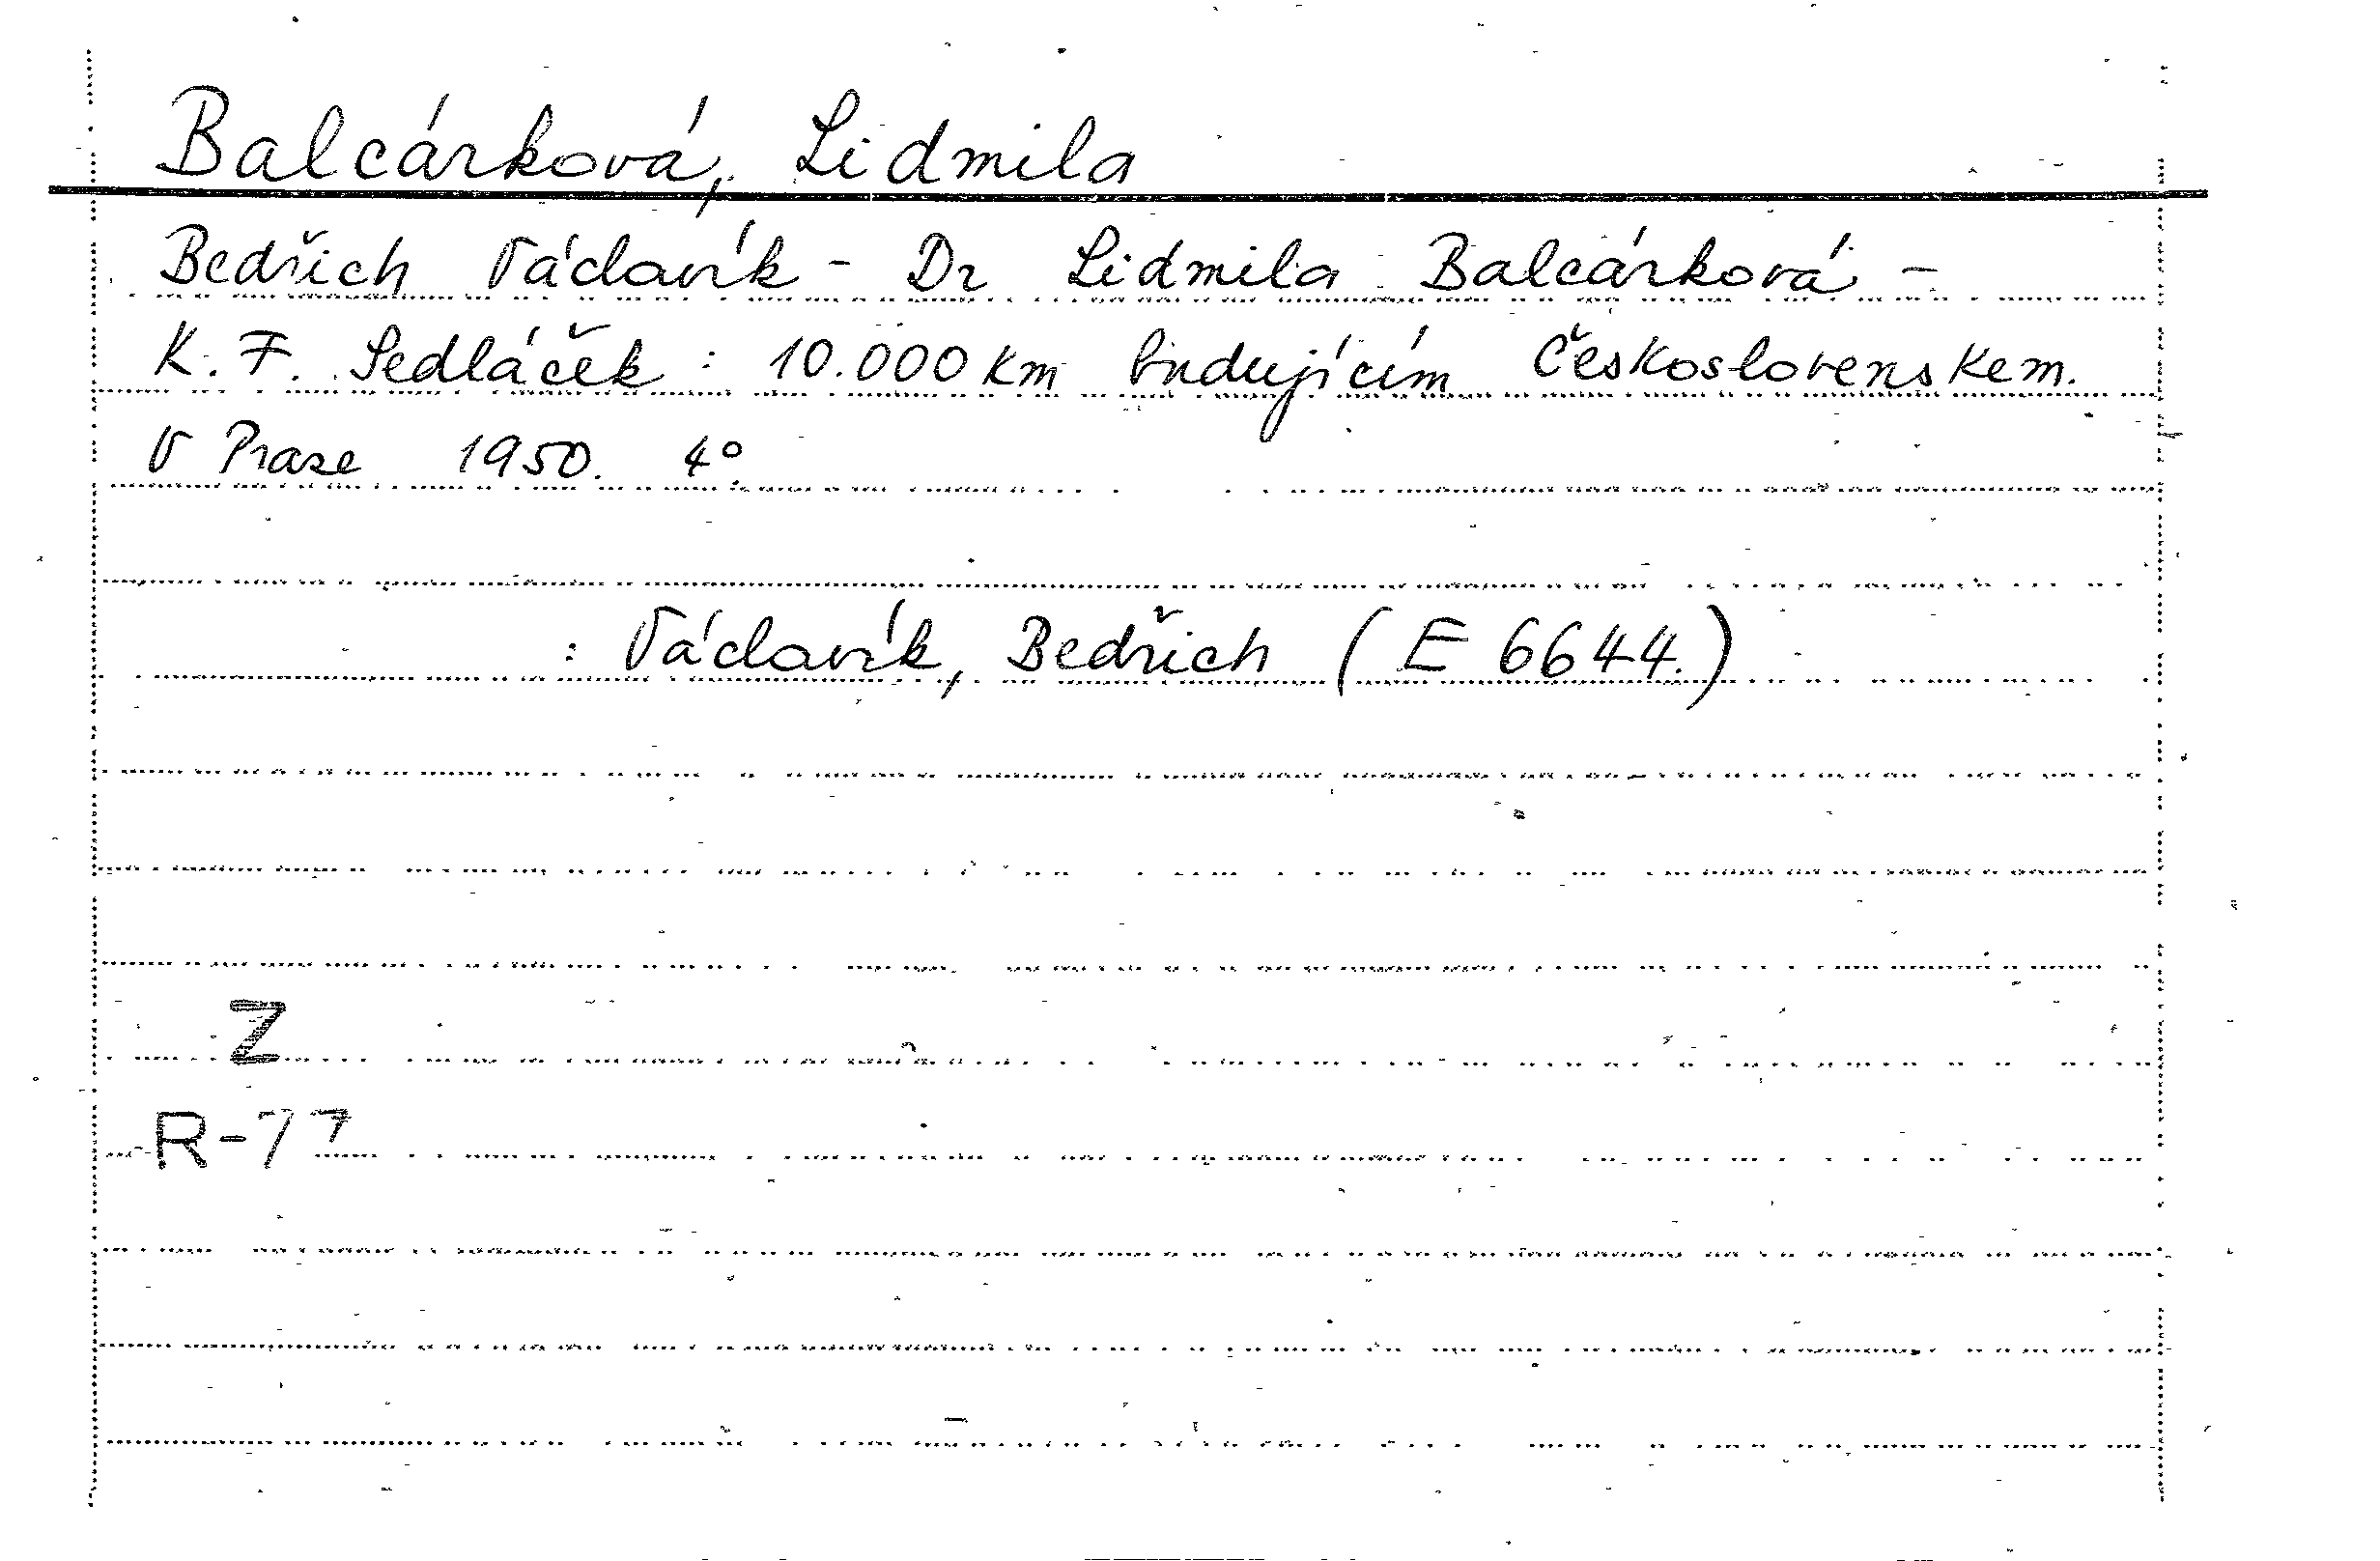 Balcárková, Lidmila
Bedřich Václavík - Dr Lidmila Balcárková -
K. F. Sedláček : 10.000 km budujícím Československem.
V Praze 1950. 4°
: Václavík, Bedřich (E 6644.)
Z
R-77